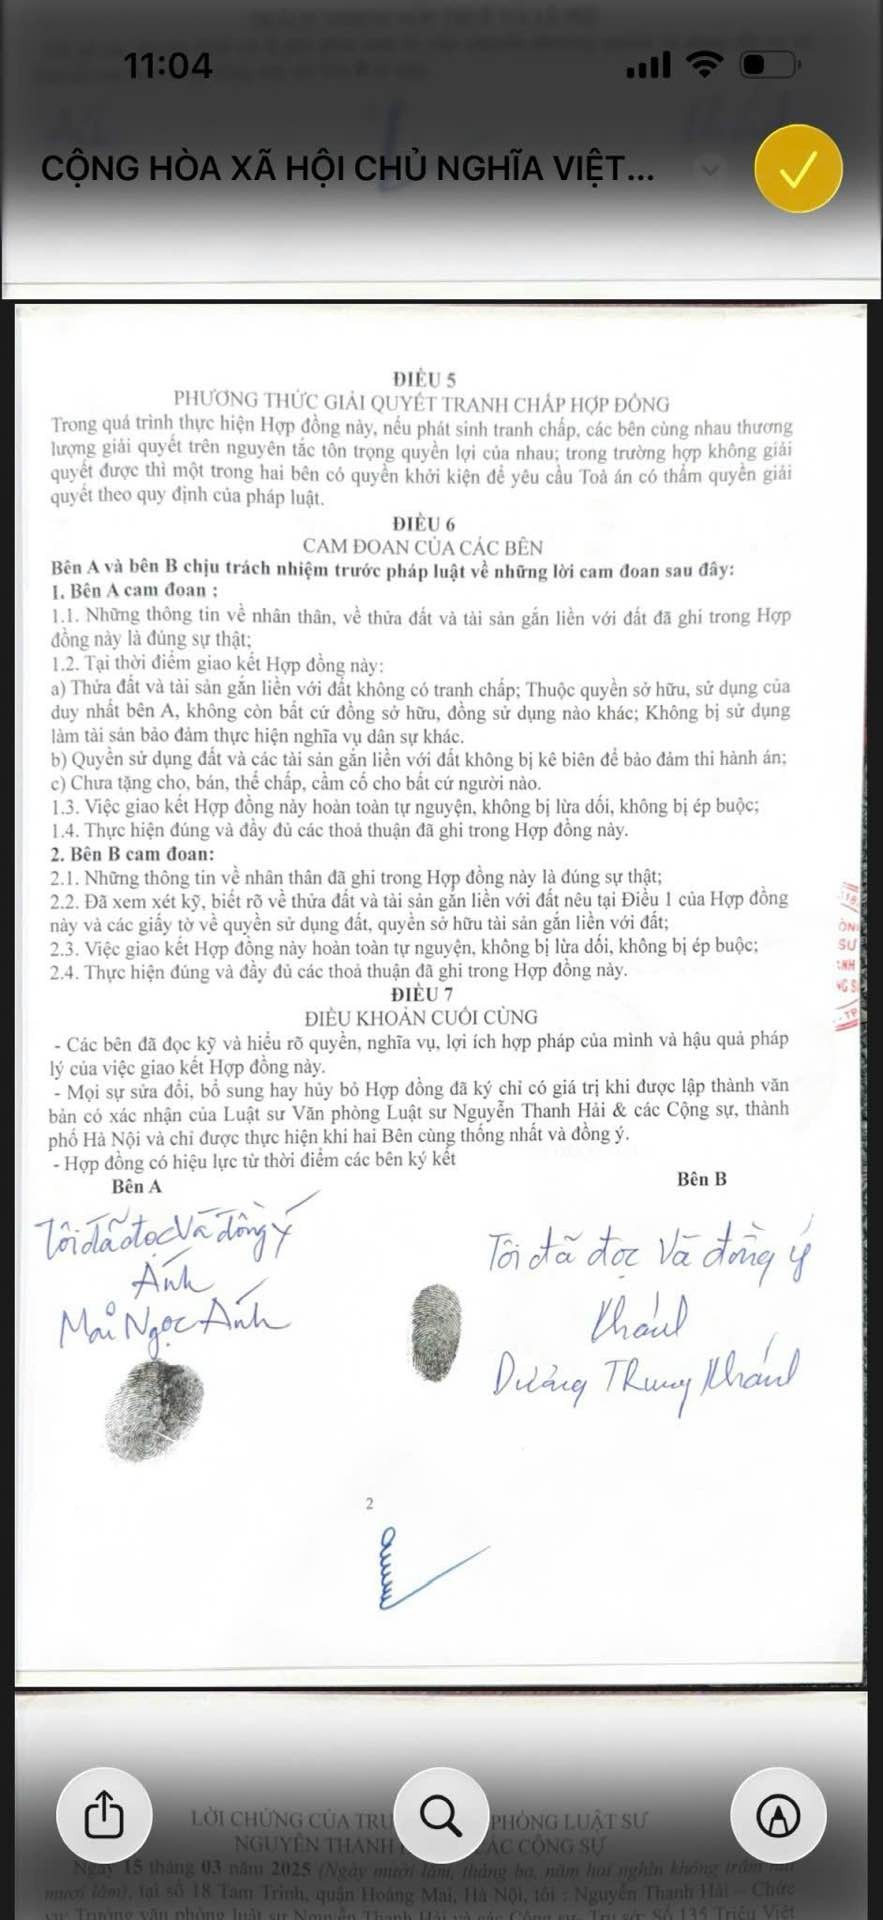 11:04
CỘNG HÒA XÃ HỘI CHỦ NGHĨA VIỆT...
ĐIỀU 5
PHƯƠNG THỨC GIẢI QUYẾT TRANH CHẤP HỢP ĐỒNG
Trong quá trình thực hiện Hợp đồng này, nếu phát sinh tranh chấp, các bên cùng nhau thương
lượng giải quyết trên nguyên tắc tôn trọng quyền lợi của nhau; trong trường hợp không giải
quyết được thì một trong hai bên có quyền khởi kiện để yêu cầu Toà án có thẩm quyền giải
quyết theo quy định của pháp luật.
ĐIỀU 6
CAM ĐOAN CỦA CÁC BÊN
Bên A và bên B chịu trách nhiệm trước pháp luật về những lời cam đoan sau đây:
1. Bên A cam đoan :
1.1. Những thông tin về nhân thân, về thửa đất và tài sản gắn liền với đất đã ghi trong Hợp
đồng này là đúng sự thật;
1.2. Tại thời điểm giao kết Hợp đồng này:
a) Thửa đất và tài sản gắn liền với đất không có tranh chấp; Thuộc quyền sở hữu, sử dụng của
duy nhất bên A, không còn bất cứ đồng sở hữu, đồng sử dụng nào khác; Không bị sử dụng
làm tài sản bảo đảm thực hiện nghĩa vụ dân sự khác.
b) Quyền sử dụng đất và các tài sản gắn liền với đất không bị kê biên để bảo đảm thi hành án;
c) Chưa tặng cho, bán, thế chấp, cầm cố cho bất cứ người nào.
1.3. Việc giao kết Hợp đồng này hoàn toàn tự nguyện, không bị lừa dối, không bị ép buộc;
1.4. Thực hiện đúng và đầy đủ các thoả thuận đã ghi trong Hợp đồng này.
2. Bên B cam đoan:
2.1. Những thông tin về nhân thân đã ghi trong Hợp đồng này là đúng sự thật;
2.2. Đã xem xét kỹ, biết rõ về thửa đất và tài sản gắn liền với đất nêu tại Điều 1 của Hợp đồng
này và các giấy tờ về quyền sử dụng đất, quyền sở hữu tài sản gắn liền với đất;
2.3. Việc giao kết Hợp đồng này hoàn toàn tự nguyện, không bị lừa dối, không bị ép buộc;
2.4. Thực hiện đúng và đầy đủ các thoả thuận đã ghi trong Hợp đồng này.
ĐIỀU 7
ĐIỀU KHOẢN CUỐI CÙNG
- Các bên đã đọc kỹ và hiểu rõ quyền, nghĩa vụ, lợi ích hợp pháp của mình và hậu quả pháp
lý của việc giao kết Hợp đồng này.
- Mọi sự sửa đổi, bổ sung hay hủy bỏ Hợp đồng đã ký chỉ có giá trị khi được lập thành văn
bản có xác nhận của Luật sư Văn phòng Luật sư Nguyễn Thanh Hải & các Cộng sự, thành
phố Hà Nội và chỉ được thực hiện khi hai Bên cùng thống nhất và đồng ý.
- Hợp đồng có hiệu lực từ thời điểm các bên ký kết
Bên A
Bên B
Tôi đã đọc và đồng ý
Ánh
Mai Ngọc Ánh
Tôi đã đọc và đồng ý
Khánh
Dương Trung Khánh
2
LỜI CHỨNG CỦA TRƯ PHÒNG LUẬT SƯ
NGUYỄN THANH ÁC CỘNG SỰ
Ngày 15 tháng 03 năm 2025 (Ngày mười lăm, tháng ba, năm hai nghìn không trăm hai
mươi lăm), tại số 18 Tam Trinh, quận Hoàng Mai, Hà Nội, tôi : Nguyễn Thanh Hải – Chức
vụ: Trưởng văn phòng luật sư Nguyễn Thanh Hải và các Cộng sự- Trụ sở: Số 135 Triệu Việt